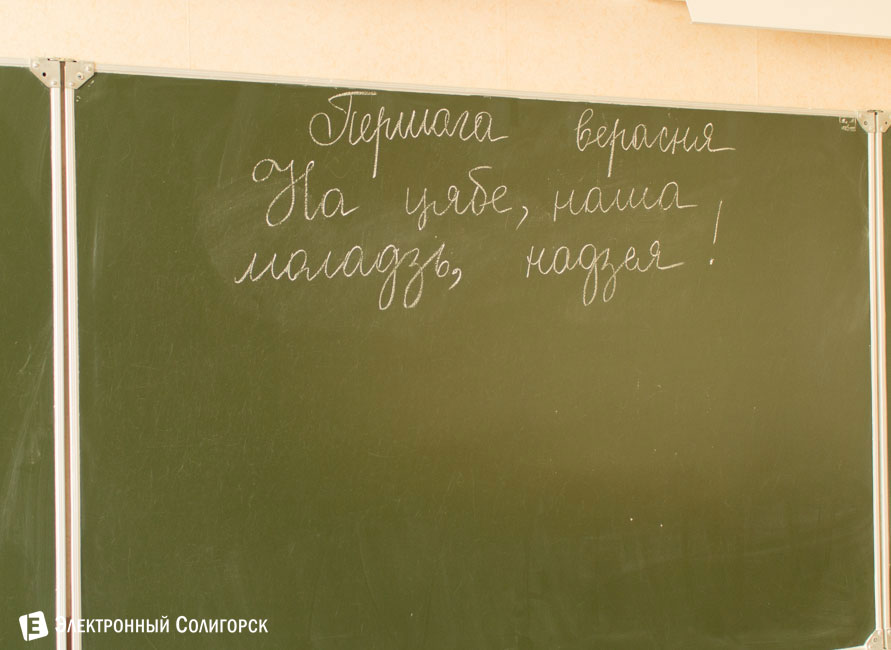 Першага верасня
На цябе, наша
моладзь, надзея!
Е Электронный Солигорск